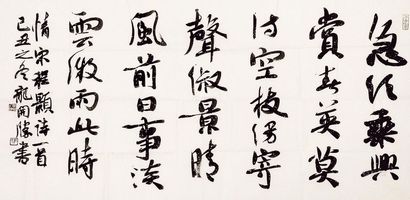 急須乘興
賞春英莫
待空枝謾寄
聲淑景晴
風前日事淡
雲微雨此時
情宋程顥詩一首
己丑之冬龍開勝書